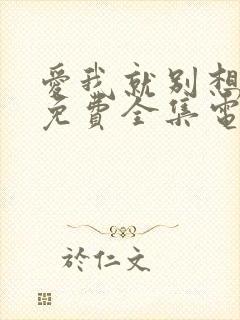 愛我就別想
免費全集電
於仁文